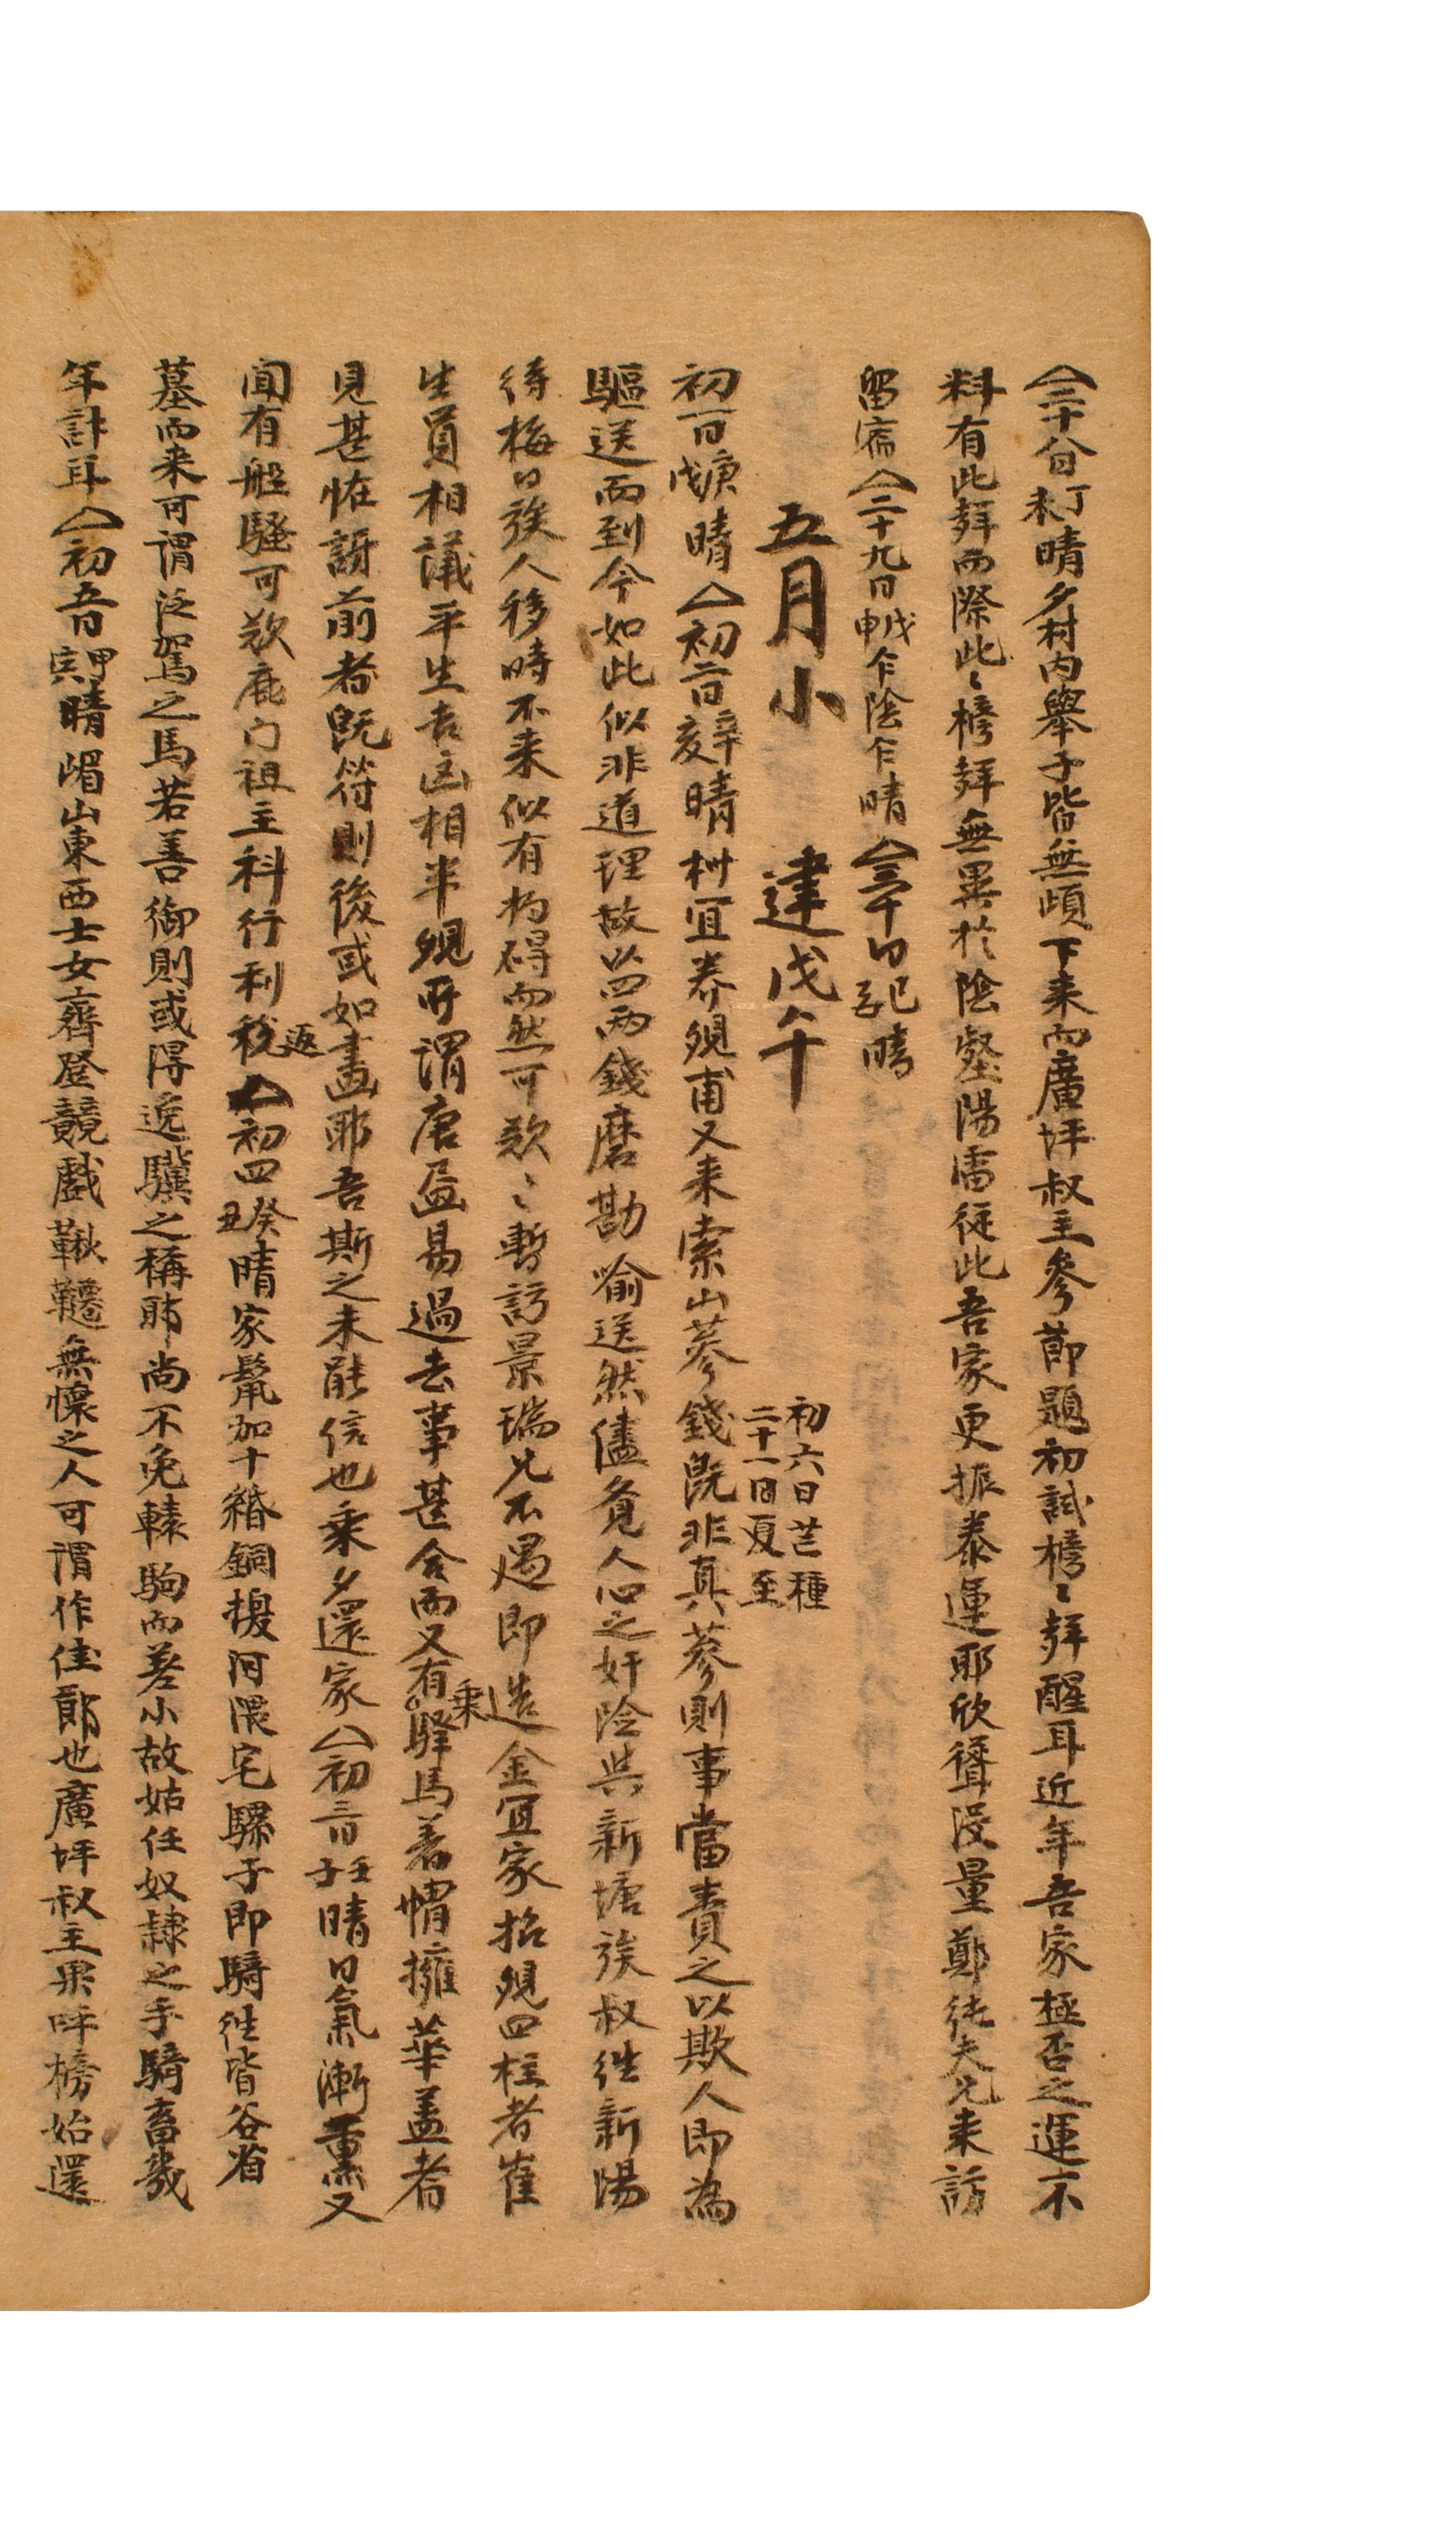 △二十八日丁未晴夕村內擧子皆無頉下來而廣坪叔主參節題初試榜〻聲醒耳近年吾家極否之運不
料有此聲而際此〻榜聲無異於陰壑陽雷從此吾家更振泰運耶欣聳沒量鄭純夫兄來訪
留宿△二十九日戊申乍陰乍晴△三十日己酉晴
五月小 建戊午 初六日芒種 二十一日夏至
初一日庚戌晴△初二日辛亥晴柳宜養兄甫又來索山蔘錢旣非眞蔘則事當責之以欺人卽為
驅送而到今如此似非道理故以四兩錢磨勘喻送然儘覓人心之奸險與新塘族叔往新陽
待梅日族人移時不來似有拘碍而然可歎〻暫訪景瑞兄不遇卽造金宜家招觀四柱者崔
生員相議平生吉凶相半觀所謂唐畫易過去事甚合而又有乘驛馬着帽擁華盖者
見甚恠訝前者旣符則後或如畵耶吾斯之未能信也乘夕還家△初三日壬子晴日氣漸熏又
聞有船騷可歎鹿門祖主科行利稅返△初四癸丑晴家鬣加十緡銅換河隈宅騾子卽騎往皆谷省
墓而來可謂泛駕之馬若善御則或得逸驥之稱耶尚不免轅駒而差小故姑任奴隸之手騎畜幾
年計耳△初五日甲寅晴嵋山東西士女齊登競戲鞦韆無懷之人可謂作佳節也廣坪叔主果呼榜始還